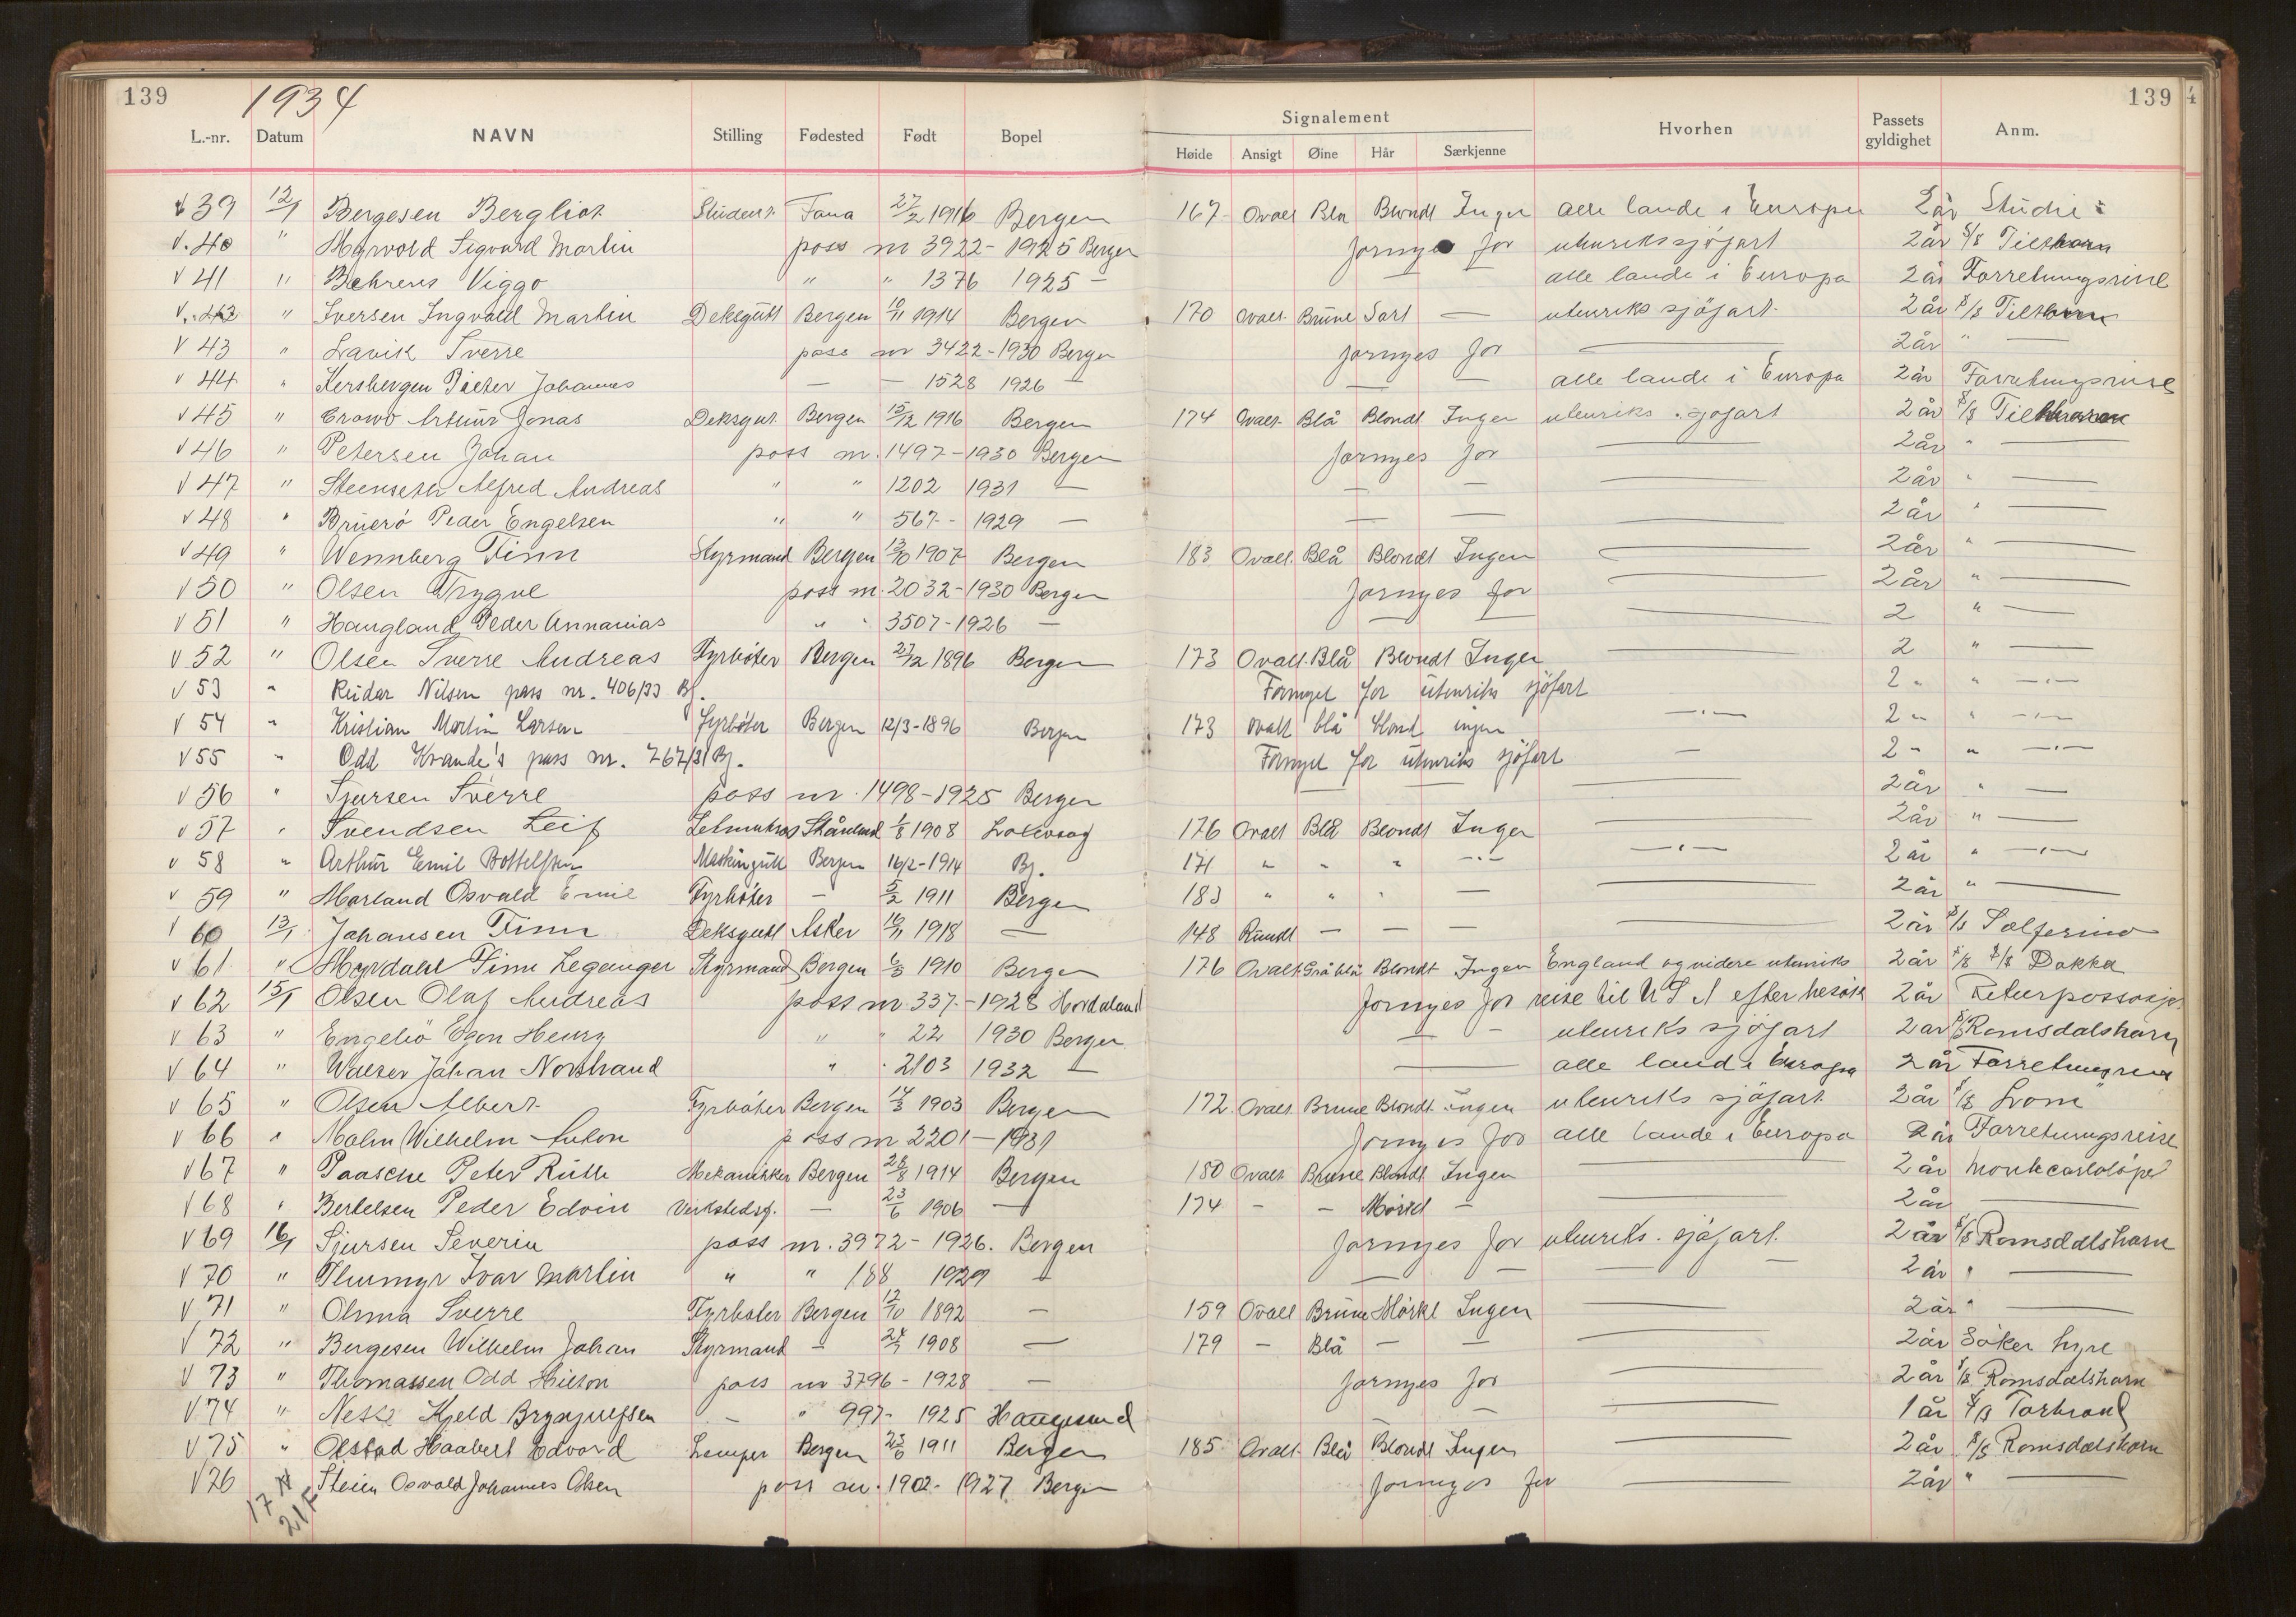 139 1934 139 4
Signalement
L.-nr. Datum NAVN Stilling Fødested Født Bopel Høide Ansigt Øine Hår Særkjenne Hvorhen Passets gyldighet Anm.
V 39 12/1 Bergesen Bergliot Student Fana 27/2 1916 Bergen 167 Ovalt Blå Blondt Ingen alle lande i Europa 2 år Studie
V. 40 " Myrvold Sigvard Martin pass nr 3922 - 1925 Bergen fornyes for utenriks sjöfart 2 år S/S Tilthorn
V 41 " Behrens Viggo " " 1376 1925 - alle lande i Europa 2 år Forretningsreise
V. 42 " Iversen Ingvald Martin Deksgutt Bergen 10/11 1914 Bergen 170 ovalt Brune Sort — utenriks sjöfart 2 år S/S Tilthorn
V 43 " Lavik Sverre pass nr 3422 - 1930 Bergen fornyes for — 2 år " —
V 44 " Kersbergen Pieter Johannes — — 1528 1926 — — — alle lande i Europa 2 år Forretningsreise
V 45 " Crowo Arthur Jonas Deksgut Bergen 15/12 1916 Bergen 174 Ovalt Blå Blondt Ingen utenriks sjöfart 2 år S/S
V 46 " Petersen Johan pass nr. 1497 - 1930 Bergen fornyes for — 2 år " —
V 47 " Steenseth Alfred Andreas " " 1202 1931 — — — — 2 år " —
V 48 " Bruerö Peder Engelsen " " 567 - 1929 — — — — 2 år " —
V 49 " Wennberg Finn Styrmand Bergen 13/10 1907 Bergen 183 Ovalt Blå Blondt Ingen — 2 år " —
V 50 " Olsen Trygve pass nr. 2032 - 1930 Bergen fornyes for — 2 år " —
V 51 " Haugland Peder Annanias " " 3507 - 1926 — — — — 2 " —
V 52 " Olsen Sverre Andreas Fyrböter Bergen 27/12 1896 Bergen 173 Ovalt Blå Blondt Ingen — 2 " —
V 53 " Reidar Nilsen pass nr. 406/33 Bg. Fornyet for utenriks sjöfart 2 " " —"—
V 54 " Kristian Martin Larsen Fyrböter Bergen 12/3-1896 Bergen 173 ovalt blå blond ingen —"— 2 " " —"—
V 55 " Odd Krande's pass nr. 767/31 Bg. Fornyet for utenriks sjöfart — 2 " " —"—
V 56 " Sjursen Sverre pass nr. 1498 - 1925 Bergen — — — 2 år " —
V 57 " Svendsen Leif Skånland 1/8 1908 Laksevaag 176 Ovalt Blå Blondt Ingen — 2 år " —
V 58 " Arthur Emil Bottelsen Maskingutt Bergen 16/2-1914 Bg. 171 " " " —"— —"— 2 år " —"—
V 59 " Morland Osvald Emil Fyrböter — 5/2 1911 Bergen 183 " " " — — 2 år " —
V 60 13/1 Johansen Finn Deksgutt Asker 16/11 1918 — 148 Rundt — — — — 2 år S/S Solferino
V 61 " Myrdahl Finn Leganger Styrmand Bergen 6/3 1910 Bergen 176 Ovalt Gråblå Blondt Ingen England og videre utenriks 2 år S/S Dokka
V 62 15/1 Olsen Olaf Andreas pass nr 337 - 1928 Hordaland fornyes for reise til U S A efter besök 2 år
V 63 " Engebö Egon Henry " " 22 1930 Bergen — — utenriks sjöfart 2 år S/S Romsdalshorn
V 64 " Walker Johan Nordstrand " " 2103 1932 — — alle land i Europa 2 år Forretningsreise
V 65 " Olsen Albert Fyrböter Bergen 14/3 1903 Bergen 172 Ovalt Brune Blondt Ingen utenriks sjöfart 2 år S/S Lom
V 66 " Malm Wilhelm Anton pass nr 2201 - 1931 fornyes for alle lande i Europa 2 år Forretningsreise
V 67 " Paasche Peter Rütte Mekaniker Bergen 28/8 1914 Bergen 180 Ovalt Brune Blondt Ingen — 2 år Montecarlolöpet
V 68 " Bertelsen Peder Edvin Verkstedsf. — 23/6 1906 — 174 — — Mörkt — — 2 år —
V 69 16/1 Sjursen Severin pass nr. 3972 - 1926. Bergen fornyes for utenriks sjöfart 2 år S/S Romsdalshorn
V 70 " Thurmyr Ivar Martin " " 188 1929 — — — — 2 år " —
V 71 " Olsma Sverre Fyrböter Bergen 12/10 1892 — 159 Ovalt Brune Mörkt Ingen — 2 år " —
V 72 " Bergesen Wilhelm Johan Styrmand — 1908 — 179 — Blå — — — 2 år Söker hyre
V 73 " Thomassen Odd Hilson pass nr 3796 - 1928 — fornyes for — 2 år S/S Romsdalshorn
V 74 " Nesse Kjeld Brynjulfsen — " 997 - 1925 Haugesund — 1 år S/S
V 75 " Olstad Haabert Edvard Lemper Bergen 23/6 1911 Bergen 185 Ovalt Blå Blondt Ingen — 2 år S/S Romsdalshorn
V 76 Steien Osvald Johannes Olsen pass nr. 1902 - 1927 Bergen fornyes for — 2 år " —
17 N
21 F